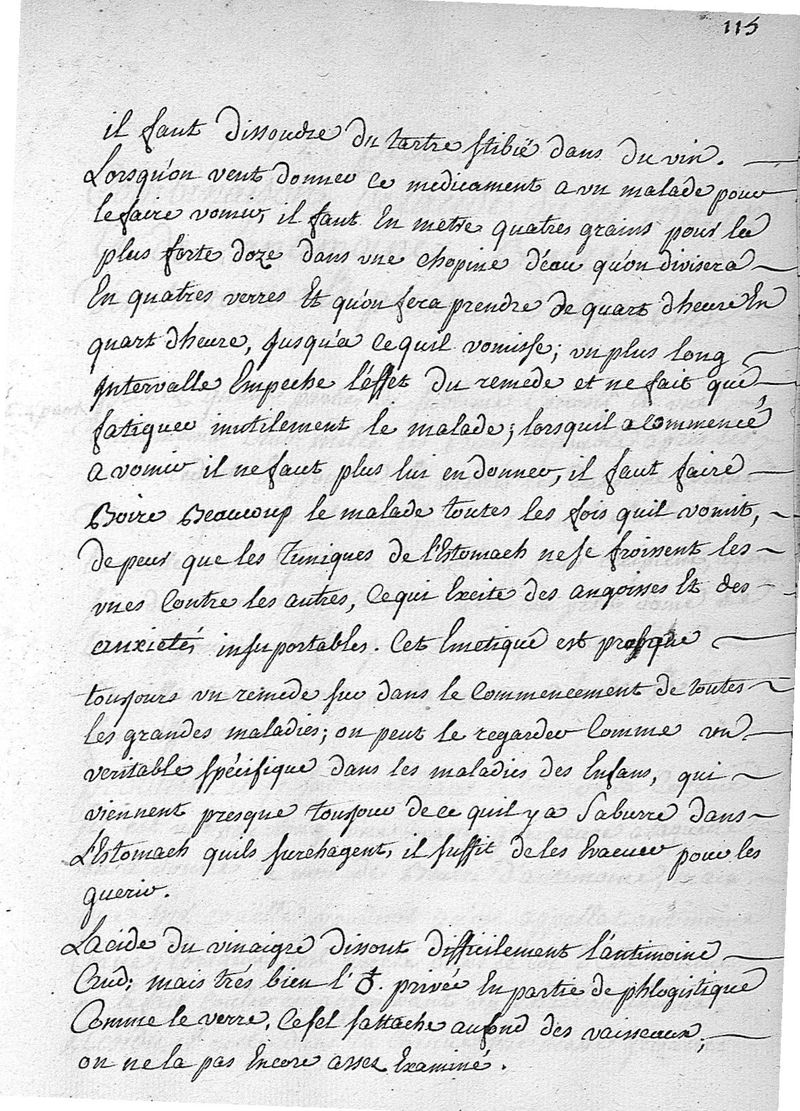 115
il faut dissoudre du tartre stibié dans du vin.
Lorsqu'on veut donner ce medicament a un malade pour
le faire vomir, il faut En metre quatres grains pour la
plus forte doze dans une chopine d'eau qu'on divisera
En quatres verres Et qu'on fera prendre de quart dheure En
quart dheure, jusqu'a ce quil vomisse; un plus long
jntervalle Empeche l'effet du remede et ne fait que
fatiguer inutilement le malade; lorsquil a commencé
a vomir il ne faut plus lui en donner, il faut faire
Boire Beaucoup le malade toutes les fois quil vomit,
de peur que les Tuniques de l'Estomach ne se froissent les
unes Contre les autres, ce qui Excite des angoisses Et des
anxietés insuportables. Cet Emetique est presque
toujours un remede sur dans le Commencement de toutes
les grandes maladies; on peut le regarder Comme un
veritable spécifique dans les maladies des Enfans, qui
viennent presque toujour de ce quil y a Saburre dans
L'Estomach quils surchagent, il suffit de les Evacuer pour les
guerir.
Lacide du vinaigre dissout difficilement l'antimoine
Crud; mais trés bien l'♁. privée En partie de phlogistique
Comme le verre. Ce sel s'attache au fond des vaisseaux,
on ne la pas Encore asses Examiné.